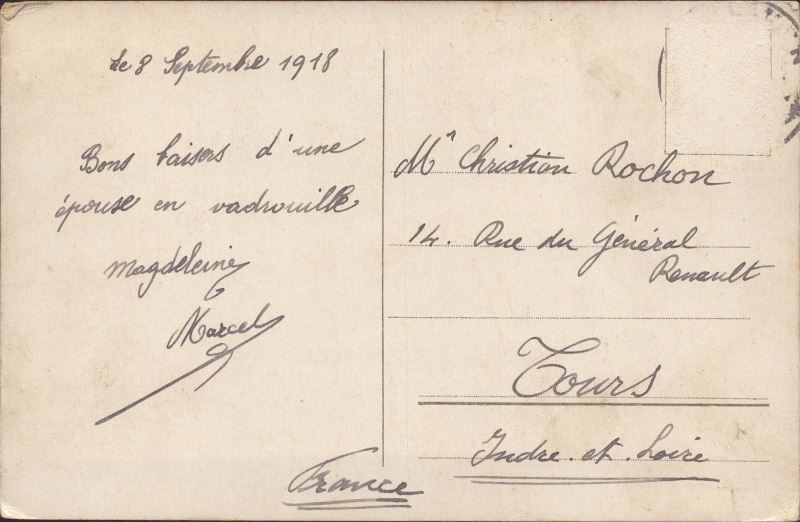 Le 8 Septembre 1918
Bons baisers d'une
épouse en vadrouille
Magdeleine
Marcel
France
Mr Christian Rochon
14. Rue du Général
Renault
Tours
Indre-et-Loire